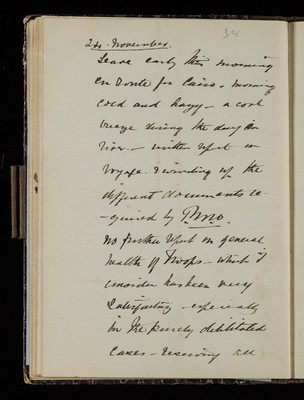 34
24 - November.
Leave early this morning
en route for Cairo - morning
cold and hazy - a cool
breeze during the day on
river - written report on
voyage & winding up the
different documents re-
-quired by P.M.O.
No further report on general
health of Troops - which I
consider has been very
satisfactory - especially
in the purely debilitated
cases - receiving all